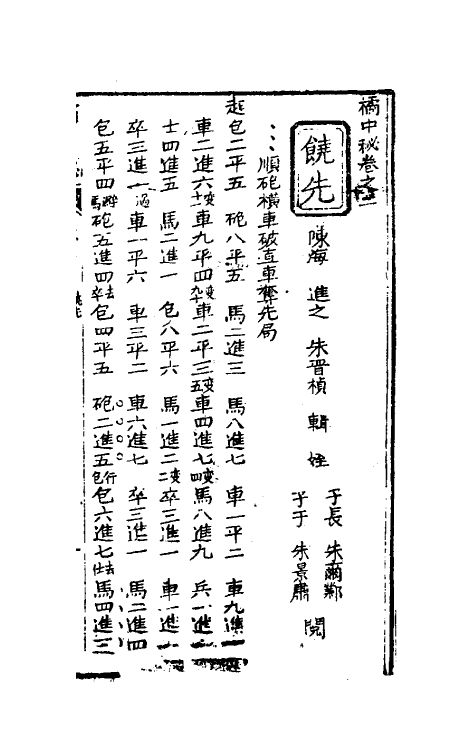 橘中秘卷之二
饒先
陳海 進之 朱晋楨 輯 姪
子長 朱爾鄴
子于 朱景肅 閱
順砲橫車破直車奪先局
起包二平五 砲八平五 馬二進三 馬八進七 車一平二 車九進一
車二進六 變士 車九平四 變卒 車二平三 變五 車四進七 變四 馬八進九 兵一進一
士四進五 馬二進一 包八平六 馬一進二 變二 卒三進一 車一進一
卒三進一 過 車一平六 車三平二 車六進七 卒三進一 馬二進四
包五平四 馬 砲五進四 去卒 包四平五 砲二進五 行包 包六進七 去仕 馬四進三